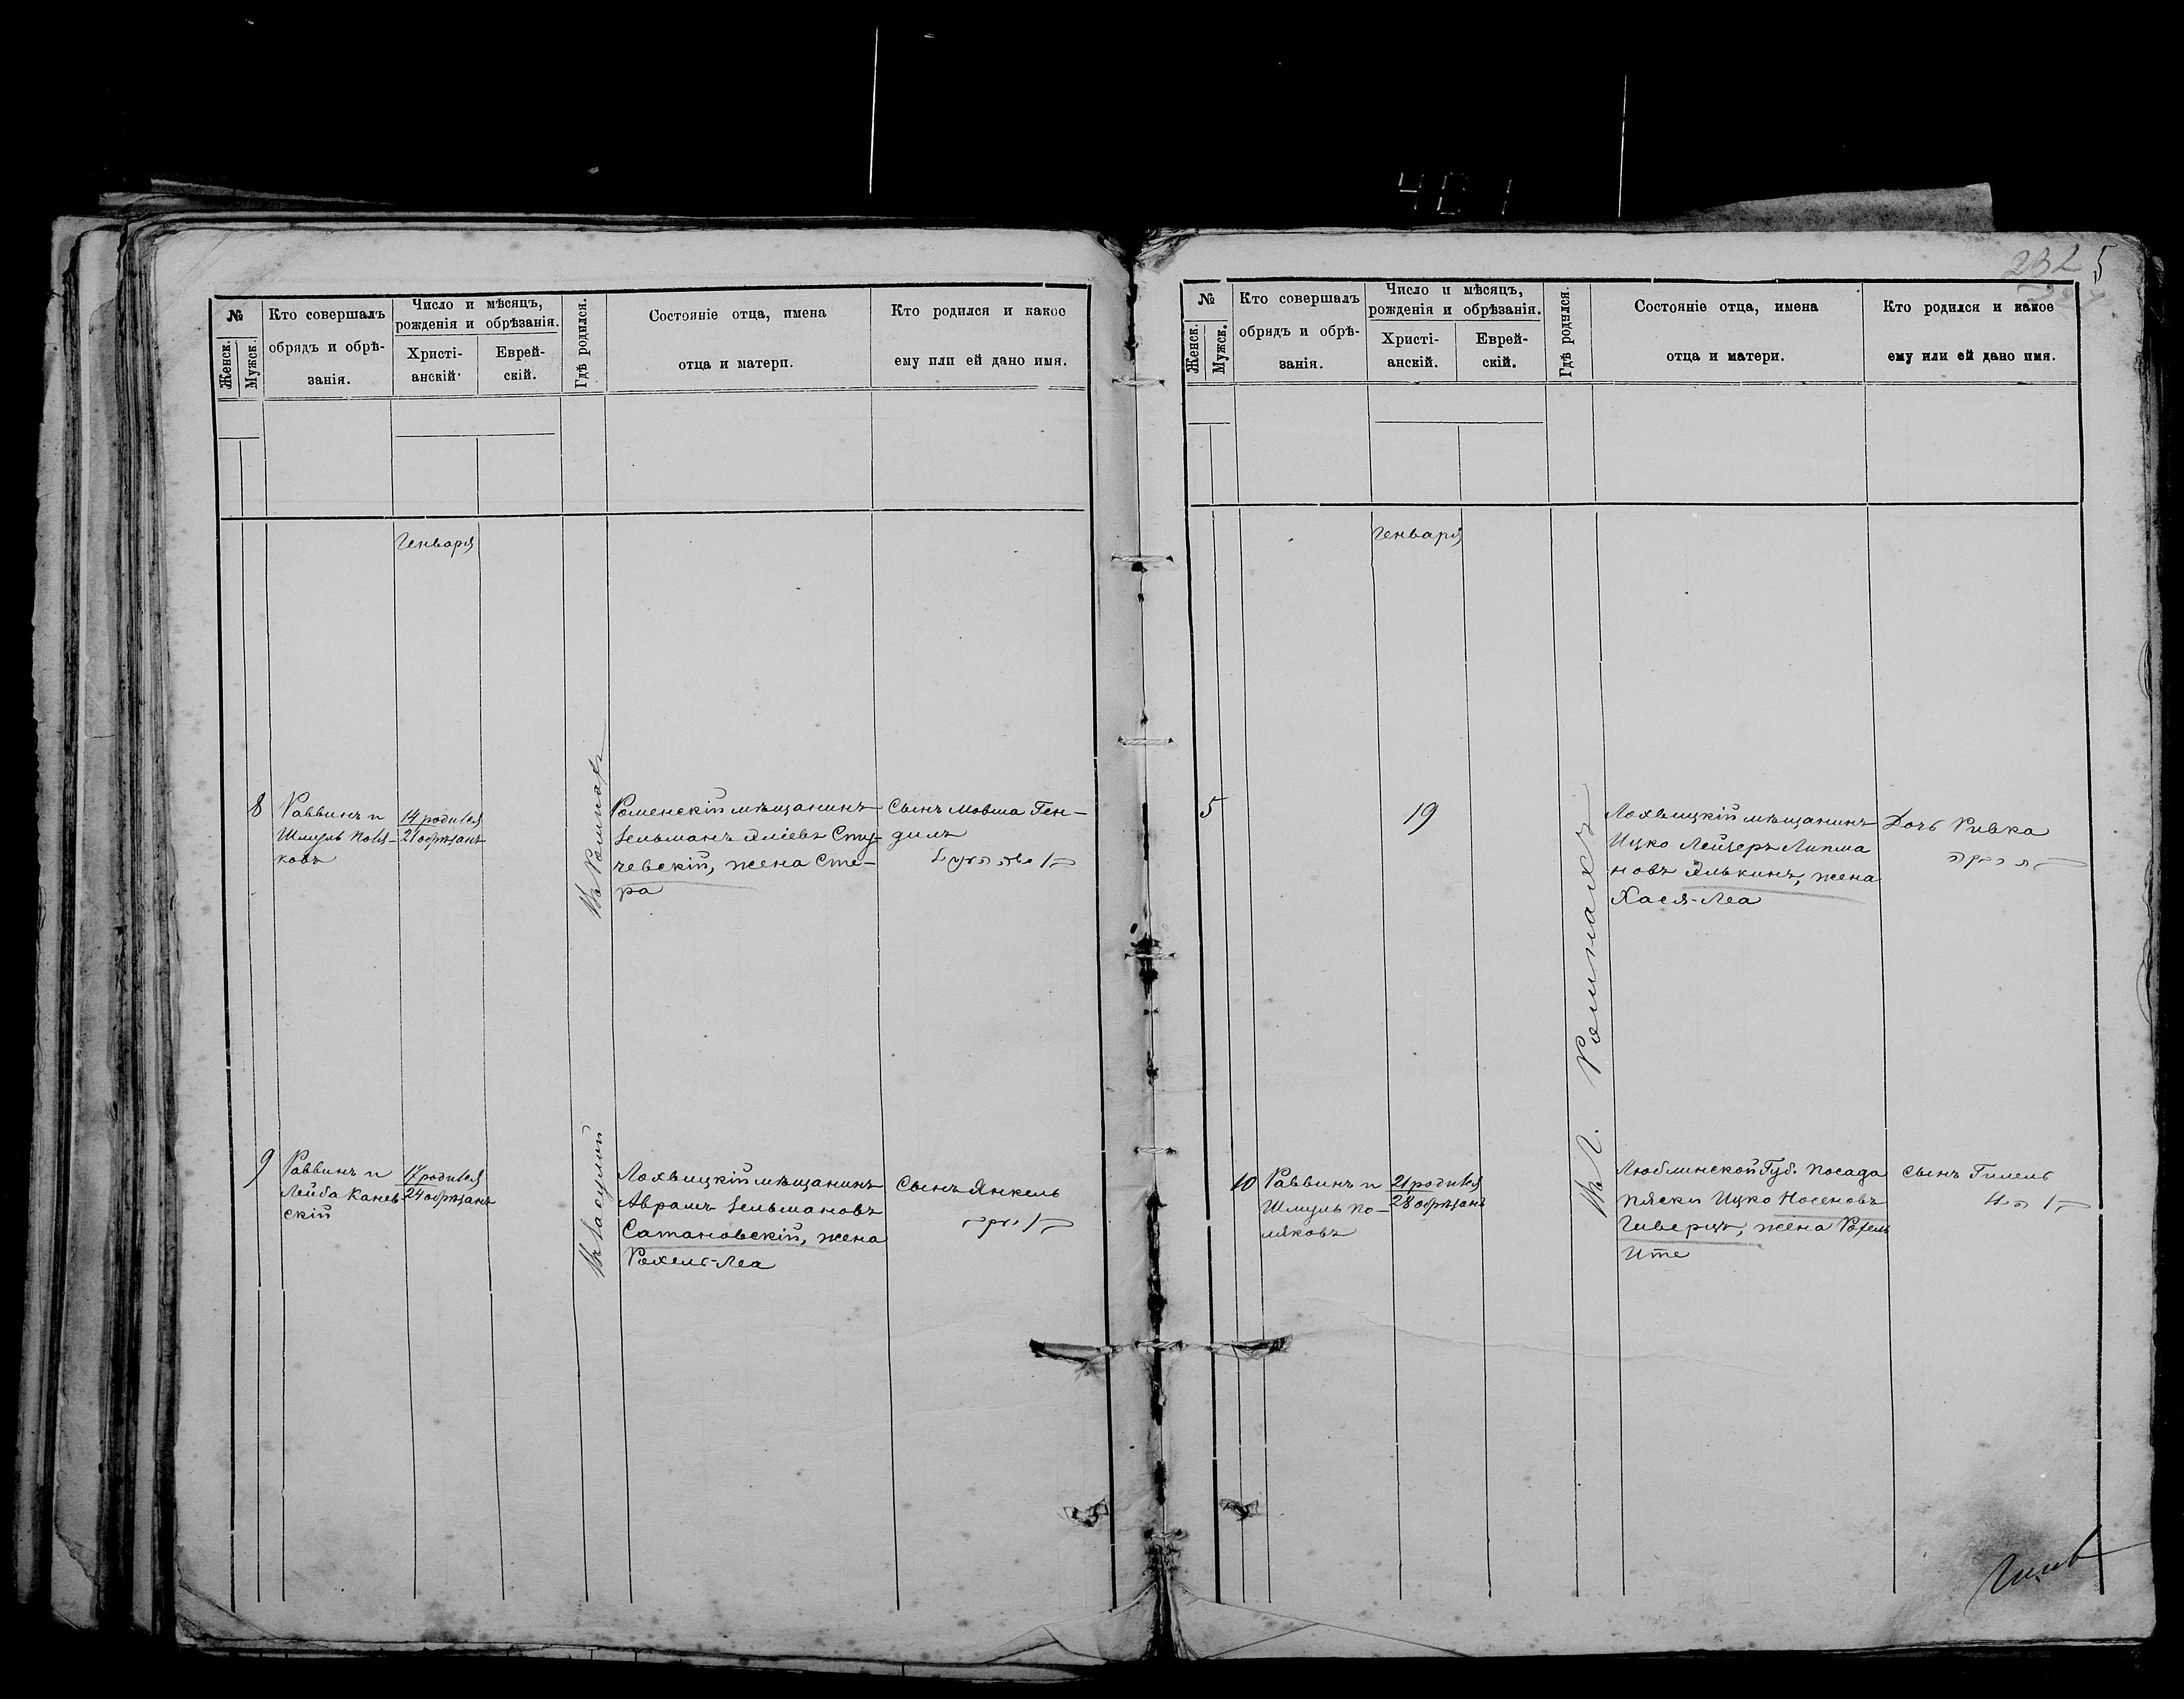 5
№
Женск.
Мужск.
Кто совершалъ
обрядъ и обрѣ-
занія.
Число и мѣсяцъ,
рожденія и обрѣзанія.
Христі-
анскій.
Еврей-
скій.
Гдѣ родился.
Состояніе отца, имена
отца и матери.
Кто родился и какое
ему или ей дано имя.
Генваря
8
Раввинъ и
Шмуль Поля-
ковъ
14 родился
21 обрѣзанъ
Въ Ромнахъ
Роменскій мѣщанинъ
Зельманъ Эліевъ
жена Сте-
ра
Сынъ Мовша Ген-
дилъ
9
Раввинъ и
Лейба Канев-
скій
17 родился
24 обрѣзанъ
Лохвицкій мѣщанинъ
Абрамъ Зельмановъ
Сатановскій, жена
Рохель-Леа
Сынъ Янкель
№
Женск.
Мужск.
Кто совершалъ
обрядъ и обрѣ-
занія.
Число и мѣсяцъ,
рожденія и обрѣзанія.
Христі-
анскій.
Еврей-
скій.
Гдѣ родился.
Состояніе отца, имена
отца и матери.
Кто родился и какое
ему или ей дано имя.
Генваря
5
19
Въ г. Ромнахъ
Лохвицкій мѣщанинъ
Ицко Лейзеръ Липма
новъ Элькинъ, жена
Хася-Леа
Дочь Ривка
10
Раввинъ и
Шмуль По-
ляковъ
21 родился
28 обрѣзанъ
Люблинской Губ. посада
Пяски Ицко Носеновъ
жена Рохель
Ите
Сынъ Гилель